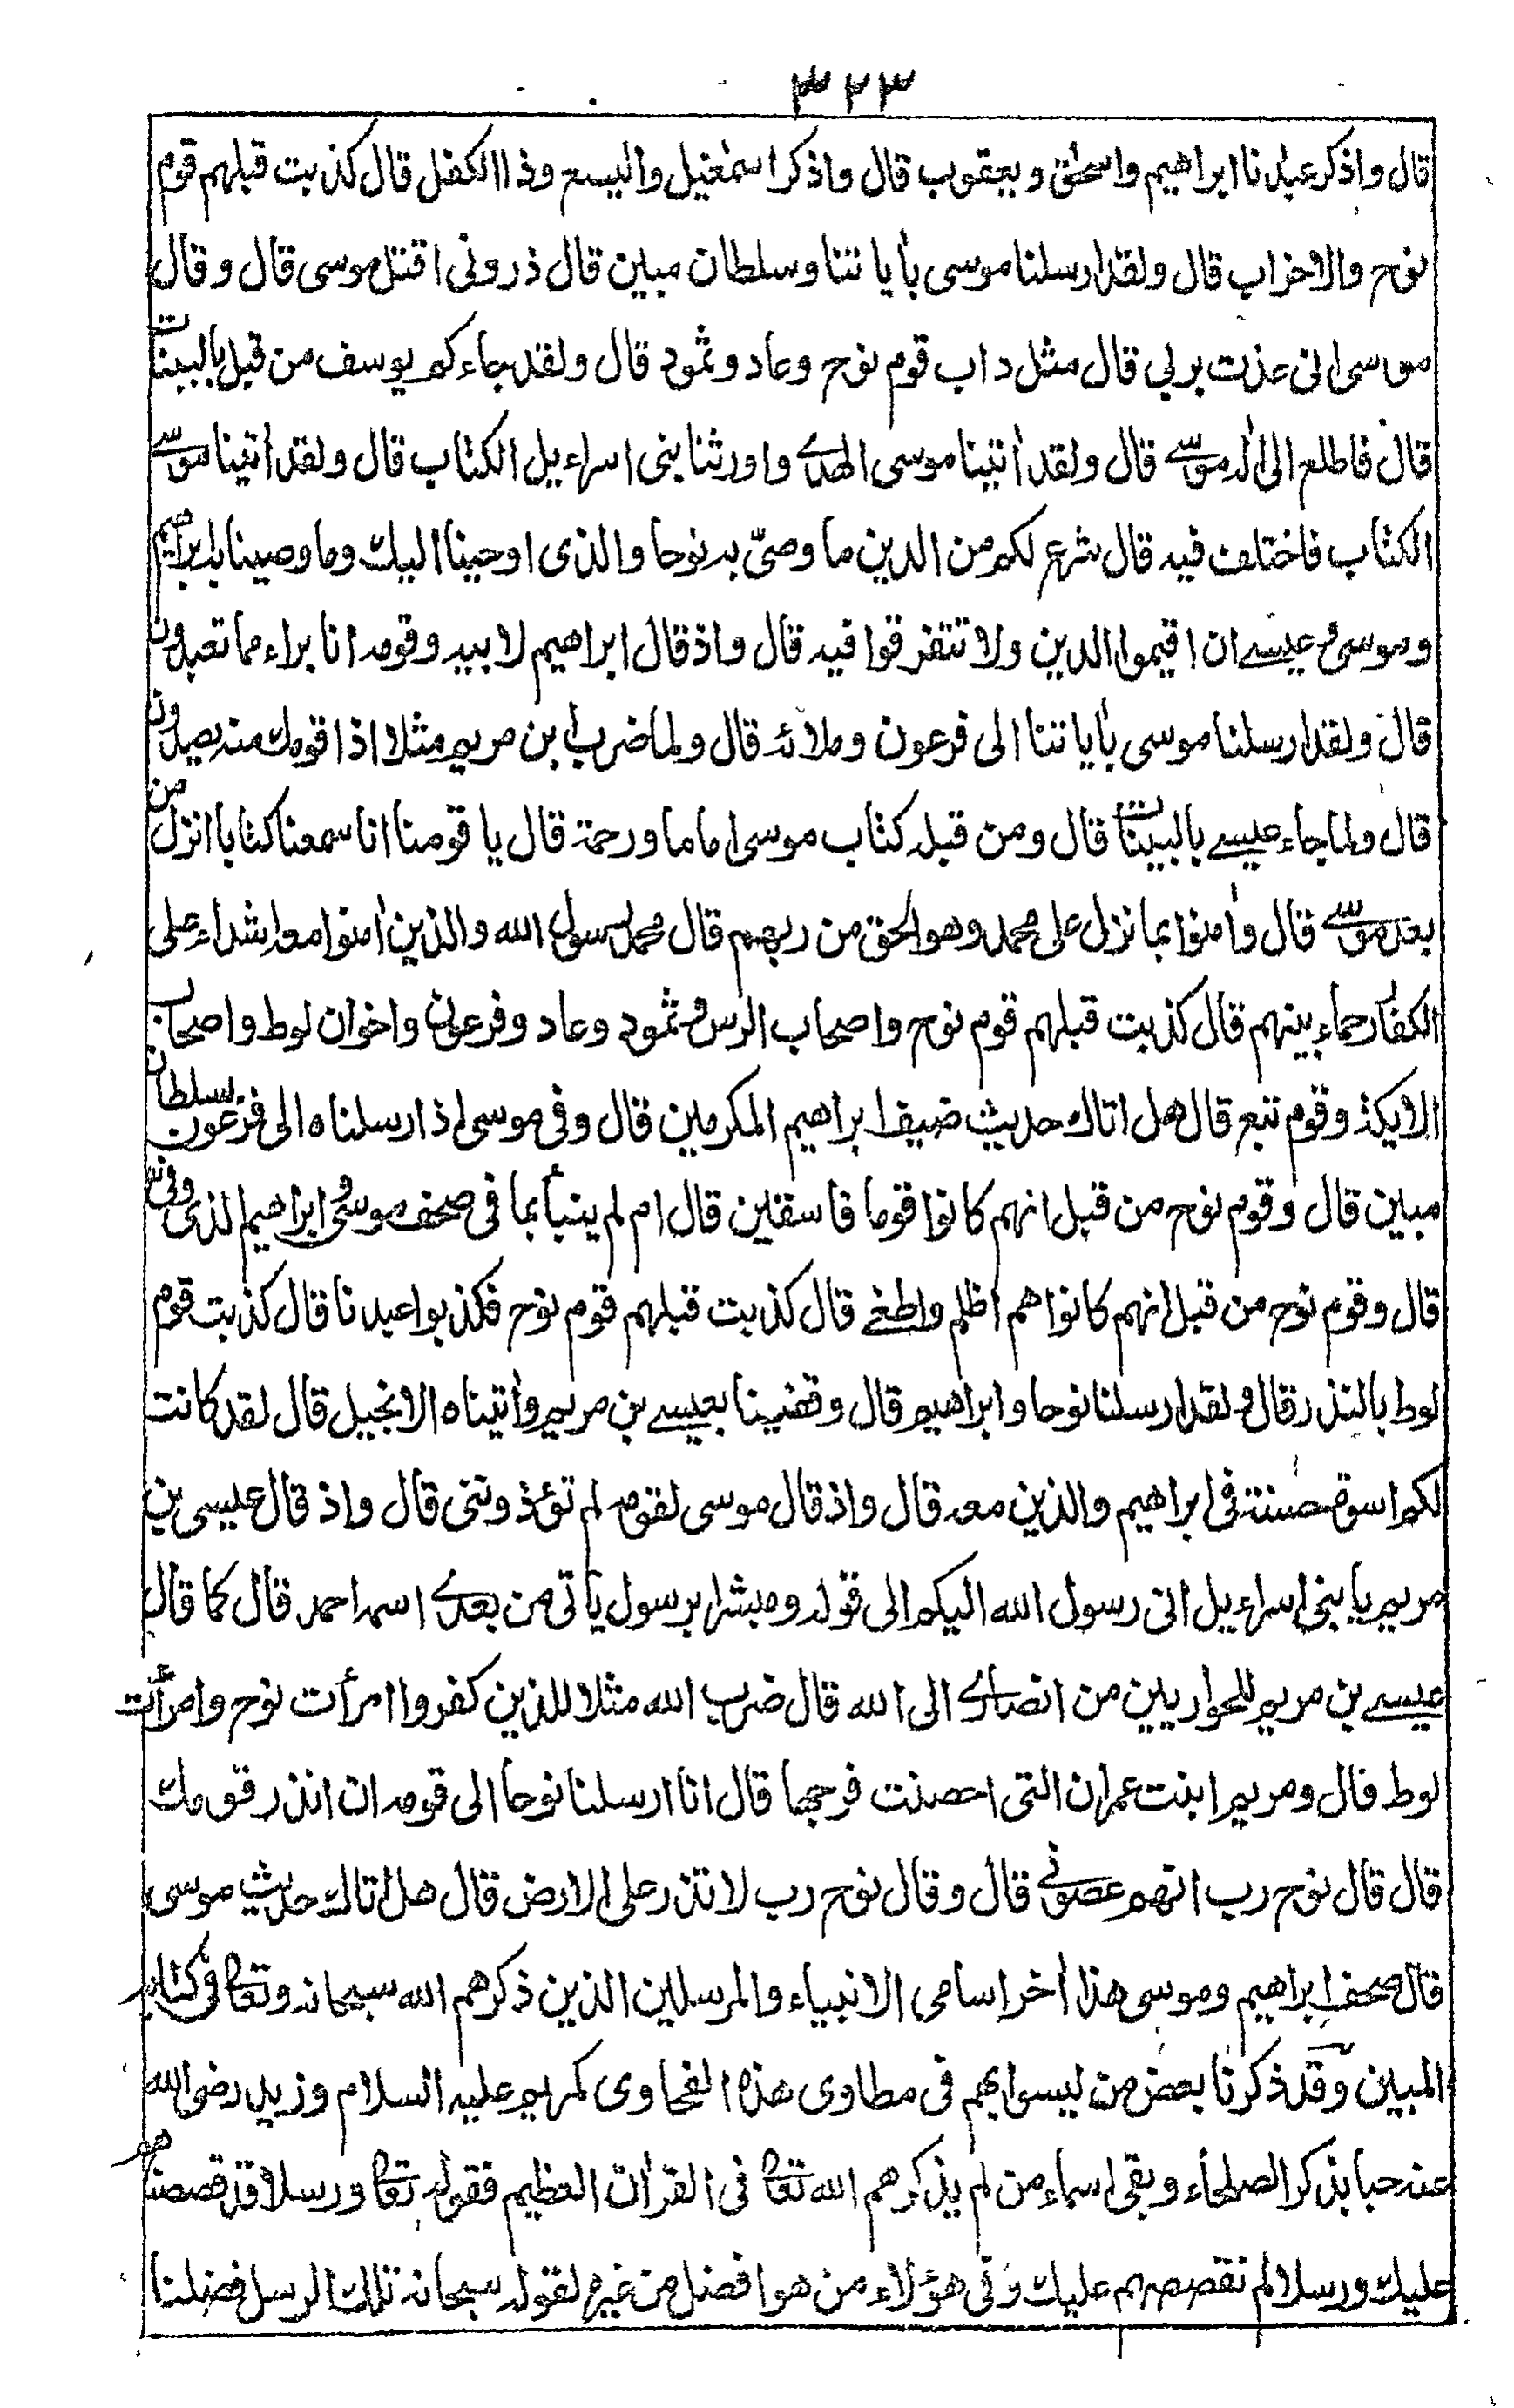 ٣٢٣
قال واذكر عبادنا ابراهيم واسحٰق ويعقوب قال واذكر اسمٰعيل واليسع وذا الكفل قال كذبت قبلهم قوم
نوح والاحزاب قال ولقد ارسلنا موسى بأياتنا وسلطان مبين قال ذروني اقتل موسى قال وقال
موسى اني عذت بربي قال مثل داب قوم نوح وعاد وثمود قال ولقد جاءكم يوسف من قبل بالبينات
قال فاطلع الى اله موسى قال ولقد أتينا موسى الهدى واورثنا بني اسراءيل الكتاب قال ولقد أتينا موسى
الكتاب فاختلف فيه قال شرع لكم من الدين ما وصّى به نوحا والذي اوحينا اليك وما وصينا به ابراهيم
وموسى وعيسى ان اقيموا الدين ولا تتفرقوا فيه قال واذ قال ابراهيم لابيه وقومه انا براء مما تعبدون
قال ولقد ارسلنا موسى بأياتنا الى فرعون وملائه قال ولما ضرب ابن مريم مثلا اذا قومك منه يصدون
قال ولما جاء عيسى بالبينات قال ومن قبله كتاب موسى اماما ورحمة قال يا قومنا انا سمعنا كتابا انزل من
بعد موسى قال وأمنوا بما نزل على محمد وهو الحق من ربهم قال محمد رسول الله والذين أمنوا معه اشداء على
الكفار رحماء بينهم قال كذبت قبلهم قوم نوح واصحاب الرس وثمود وعاد وفرعون واخوان لوط واصحاب
الايكة وقوم تبع قال هل اتاك حديث ضيف ابراهيم المكرمين قال وفي موسى اذ ارسلناه الى فرعون بسلطان
مبين قال وقوم نوح من قبل انهم كانوا قوما فاسقين قال ام لم ينبأ بما في صحف موسى وابراهيم الذي وفى
قال وقوم نوح من قبل انهم كانوا هم اظلم واطغى قال كذبت قبلهم قوم نوح فكذبوا عبدنا قال كذبت قوم
لوط بالنذر قال ولقد ارسلنا نوحا وابراهيم قال وقفينا بعيسى بن مريم وأتيناه الانجيل قال لقد كانت
لكم اسوة حسنة في ابراهيم والذين معه قال واذ قال موسى لقومه لم تؤذونني قال واذ قال عيسى بن
مريم يا بني اسراءيل اني رسول الله اليكم الى قوله ومبشرا برسول يأتي من بعدى اسمه احمد قال كما قال
عيسى بن مريم للحواريين من انصارى الى الله قال ضرب الله مثلا للذين كفروا امرأت نوح وامرأت
لوط قال ومريم ابنت عمران التي احصنت فرجها قال انا ارسلنا نوحا الى قومه ان انذر قومك
قال قال نوح رب انهم عصوني قال وقال نوح رب لا تذر على الارض قال هل اتاك حديث موسى
قال صحف ابراهيم وموسى هذا أخر اسامي الانبياء والمرسلين الذين ذكرهم الله سبحانه وتعالى في كتابه
المبين وقد ذكرنا بعض من ليسوا بهم في مطاوى هذه الفحاوى كمريم عليه السلام وزيد رضي الله
عنه حبا بذكر الصلحاء وبقى اسماء من لم يذكرهم الله تعالى في القرأن العظيم فقوله تعالى ورسلا قد قصصناهم
عليك ورسلا لم نقصصهم عليك وفي هؤلاء من هو افضل من غيره لقوله سبحانه تلك الرسل فضلنا